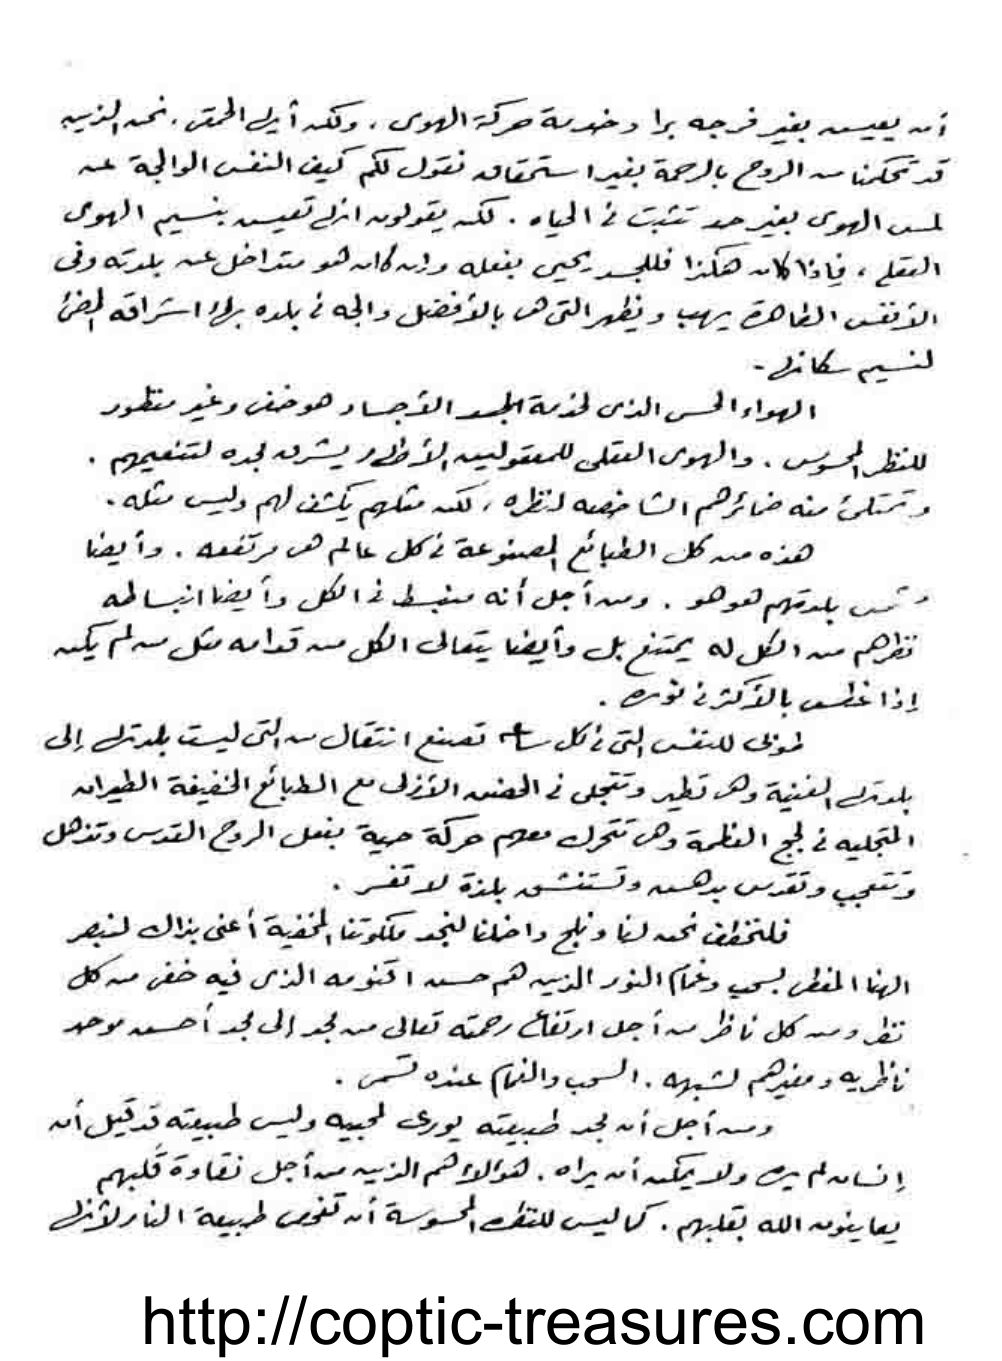 أن يعيش بغير فرجه برا وخدمة حركة الهوى . ولكن أيها الحمقى . نحن الذين
قد تحكمنا من الروح بالرحمة بغير استحقاق نقول لكم كيف النفس الوالجة عن
لمس الهوى بغير حد تثبت فى الحياه . لكن يقولون انها تعيش بنسيم الهوى
العقلى ، فإذا كان هكذا فللجسد يحيى بفعله وان كان هو متداخل عن بلدته وفى
الأنفس الطاهرة يهب ويظهر التى هى بالأفضل والجه فى بلده بهاء اشراقه المضئ
لنسيم سكانها -
الهواء الحسى الذى لخدمة الجسد الأجساد هو خفى وغير منظور
للنظر المحسوس . والهوى العقلى للمعقوليين الأطهار يشرق مجده لتنعيمهم .
وتمتلئ منه ضمائرهم الشاخصه لنظره ، لكن مثلهم يكشف لهم وليس مثله .
هذه من كل الطبائع المصنوعة فى كل عالم هى مرتفعه . وأيضا
بلدتهم هو هو . ومن أجل أنه منبسط فى الكل وأيضا انبساطه
نظرهم من الكل له يمتنع بل وأيضا يتعالى الكل من قدامه مثل من لم يكن
إذا غطس بالأكثر فى نوره .
طوبى للنفس التى فى كل ساعة تصنع انتقال من التى ليست بلدتها إلى
بلدتها الغنية وهى تطير وتتجلى فى الحضن الأزلى مع الطبائع الخفيفة الطيران
المتجليه فى لجج العظمة وهى تتحرك معهم حركة حية بفعل الروح القدس وتذهل
وتتعجب وتقدس بدهش وتستنشق بلذة لا تفسر .
فلنخطف نحن لنا ونلج داخلنا لنجد ملكوتنا المخفية أعنى بذاك لنبصر
الهنا المغطى بسحب وغمام النور الذين هم حسن اقنومه الذى فيه خفى من كل
نظر ومن كل ناظر من أجل ارتفاع رحمته تعالى من مجد إلى مجد أحسن موحد
ناظريه ومغيرهم لشبهه . السحب والغمام عنده تسمى .
ومن أجل أن مجد طبيعته يورى لمحبيه وليس طبيعته قد قيل أن
إنسان لم يره ولا يمكن أن يراه . هؤلاء هم الذين من أجل نقاوة قلبهم
يعاينون الله بقلبهم . كما ليس للنظرة المحسوسة أن تفحص طبيعة النار لأنها
http://coptic-treasures.com